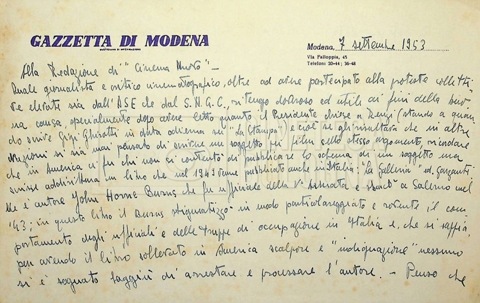 GAZZETTA DI MODENA
Modena, 7 settembre 1953
Via Falloppia, 45
Telefoni 30-44; 36-48
Alla Redazione di "Cinema Nuovo" -
Quale giornalista e critico cinematografico, oltre ad avere partecipato alla protesta collett
elevata sia dall' che dal S.N.G.C., ritengo doveroso ed utile ai fini della buo
na causa, specialmente dopo avere letto quanto il Presidente disse a Renzi (stando a quan
do scrive Gigi Ghirotti in data odierna su "La Stampa") e cioè
nazioni si sia mai pensato di scrivere un soggetto per film sullo stesso argomento, ricordare
che in America vi fu chi non si contentò di pubblicare lo schema di un soggetto ma
scrisse addirittura un libro che nel 194 venne pubblicato anche in Italia: "La Galleria" ed. Garzanti.
Ne è autore John Horne Burns che fu ufficiale della Vª Armata e a Salerno nel
'43; in questo libro il Burns stigmatizza in modo particolareggiato e rovente il com
portamento degli ufficiali e delle truppe di occupazione in Italia e, che si sappia,
pur avendo il libro sollevato in America scalpore e "indignazione" nessuno
si è sognato laggiù di arrestare e processare l'autore. - Penso che